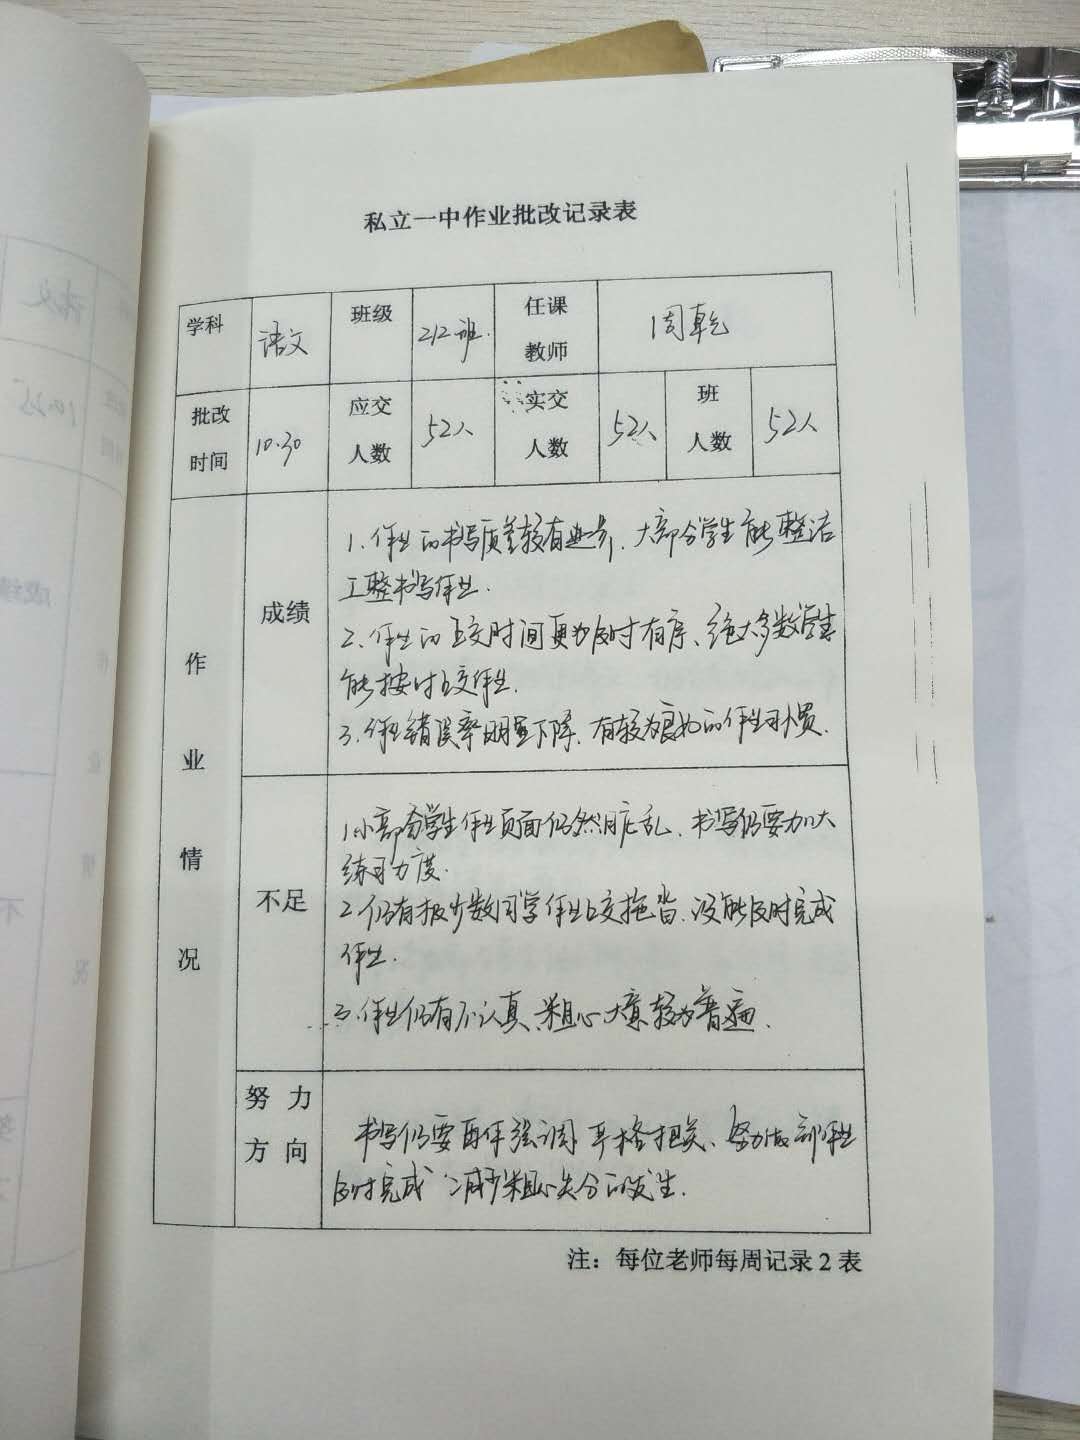 私立一中作业批改记录表
学科 语文 班级 212班. 任课教师 周乾
批改时间 10.30 应交人数 52人 实交人数 52人 班人数 52人
作业情况
成绩
1. 作业的书写质量较有进步、大部分学生能整洁
工整书写作业.
2. 作业的上交时间更为及时有序、绝大多数学生
能按时上交作业.
3. 作业错误率明显下降、有较为良好的作业习惯.
不足
1. 小部分学生作业页面仍然脏乱、书写仍要加大
练习力度.
2. 仍有极少数同学作业上交拖沓、没能及时完成
作业.
3. 作业仍有不认真、粗心大意较为普遍.
努力方向
书写仍要再作强调、严格把关、努力做到作业
及时完成、减少粗心失分的发生.
注：每位老师每周记录2表
语文
10.25
成绩
不